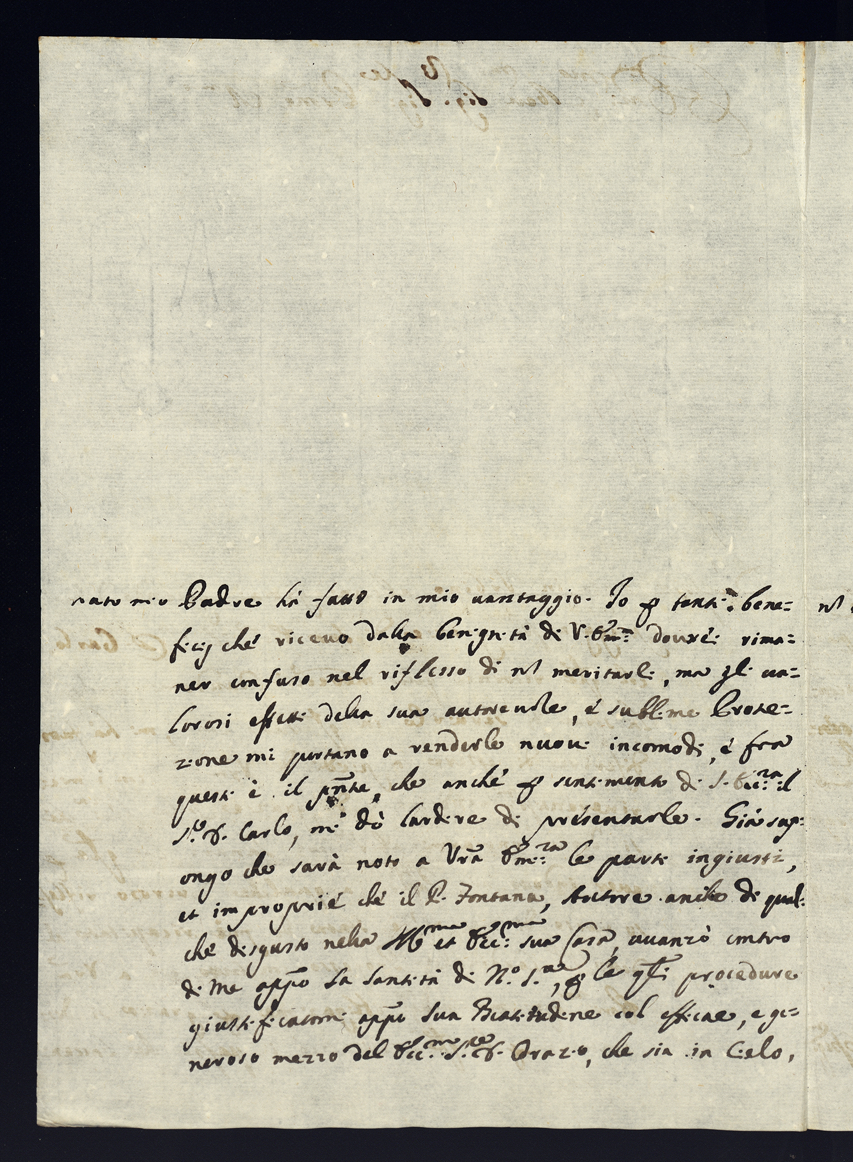 nato mio Padre hà fatto in mio uantaggio. Io p tanti bene=
ficij ché riceuo dalla benignità di V. Em.za dourèi rima=
ner confuso nel riflesso di nõ meritarli, ma gli ua=
lorosi effetti della sua autoreuole, é sublime Prote=
zione mi portano a renderle nuoui incomodi, é frà
questi è il pñte, che anché p sentimento di S. Ecc.za il
S.r D. Carlo, mi dò l'ardire di présentarle. Già sup=
ongo che sarà noto a Vrã Em.za le parti ingiusti,
et improprié ché il P. Fontana, Autore anche di qual=
ché disgusto nella Ill.ma et Ecc.ma sua Casa, auanzò contro
di me appõ la Santità di N.o S.re, p le qli procedure
giustificatomi appõ Sua Beatitudine col efficace, e ge=
neroso mezzo del Ecc.mo S.re D. Orazio, che sia in Cielo,